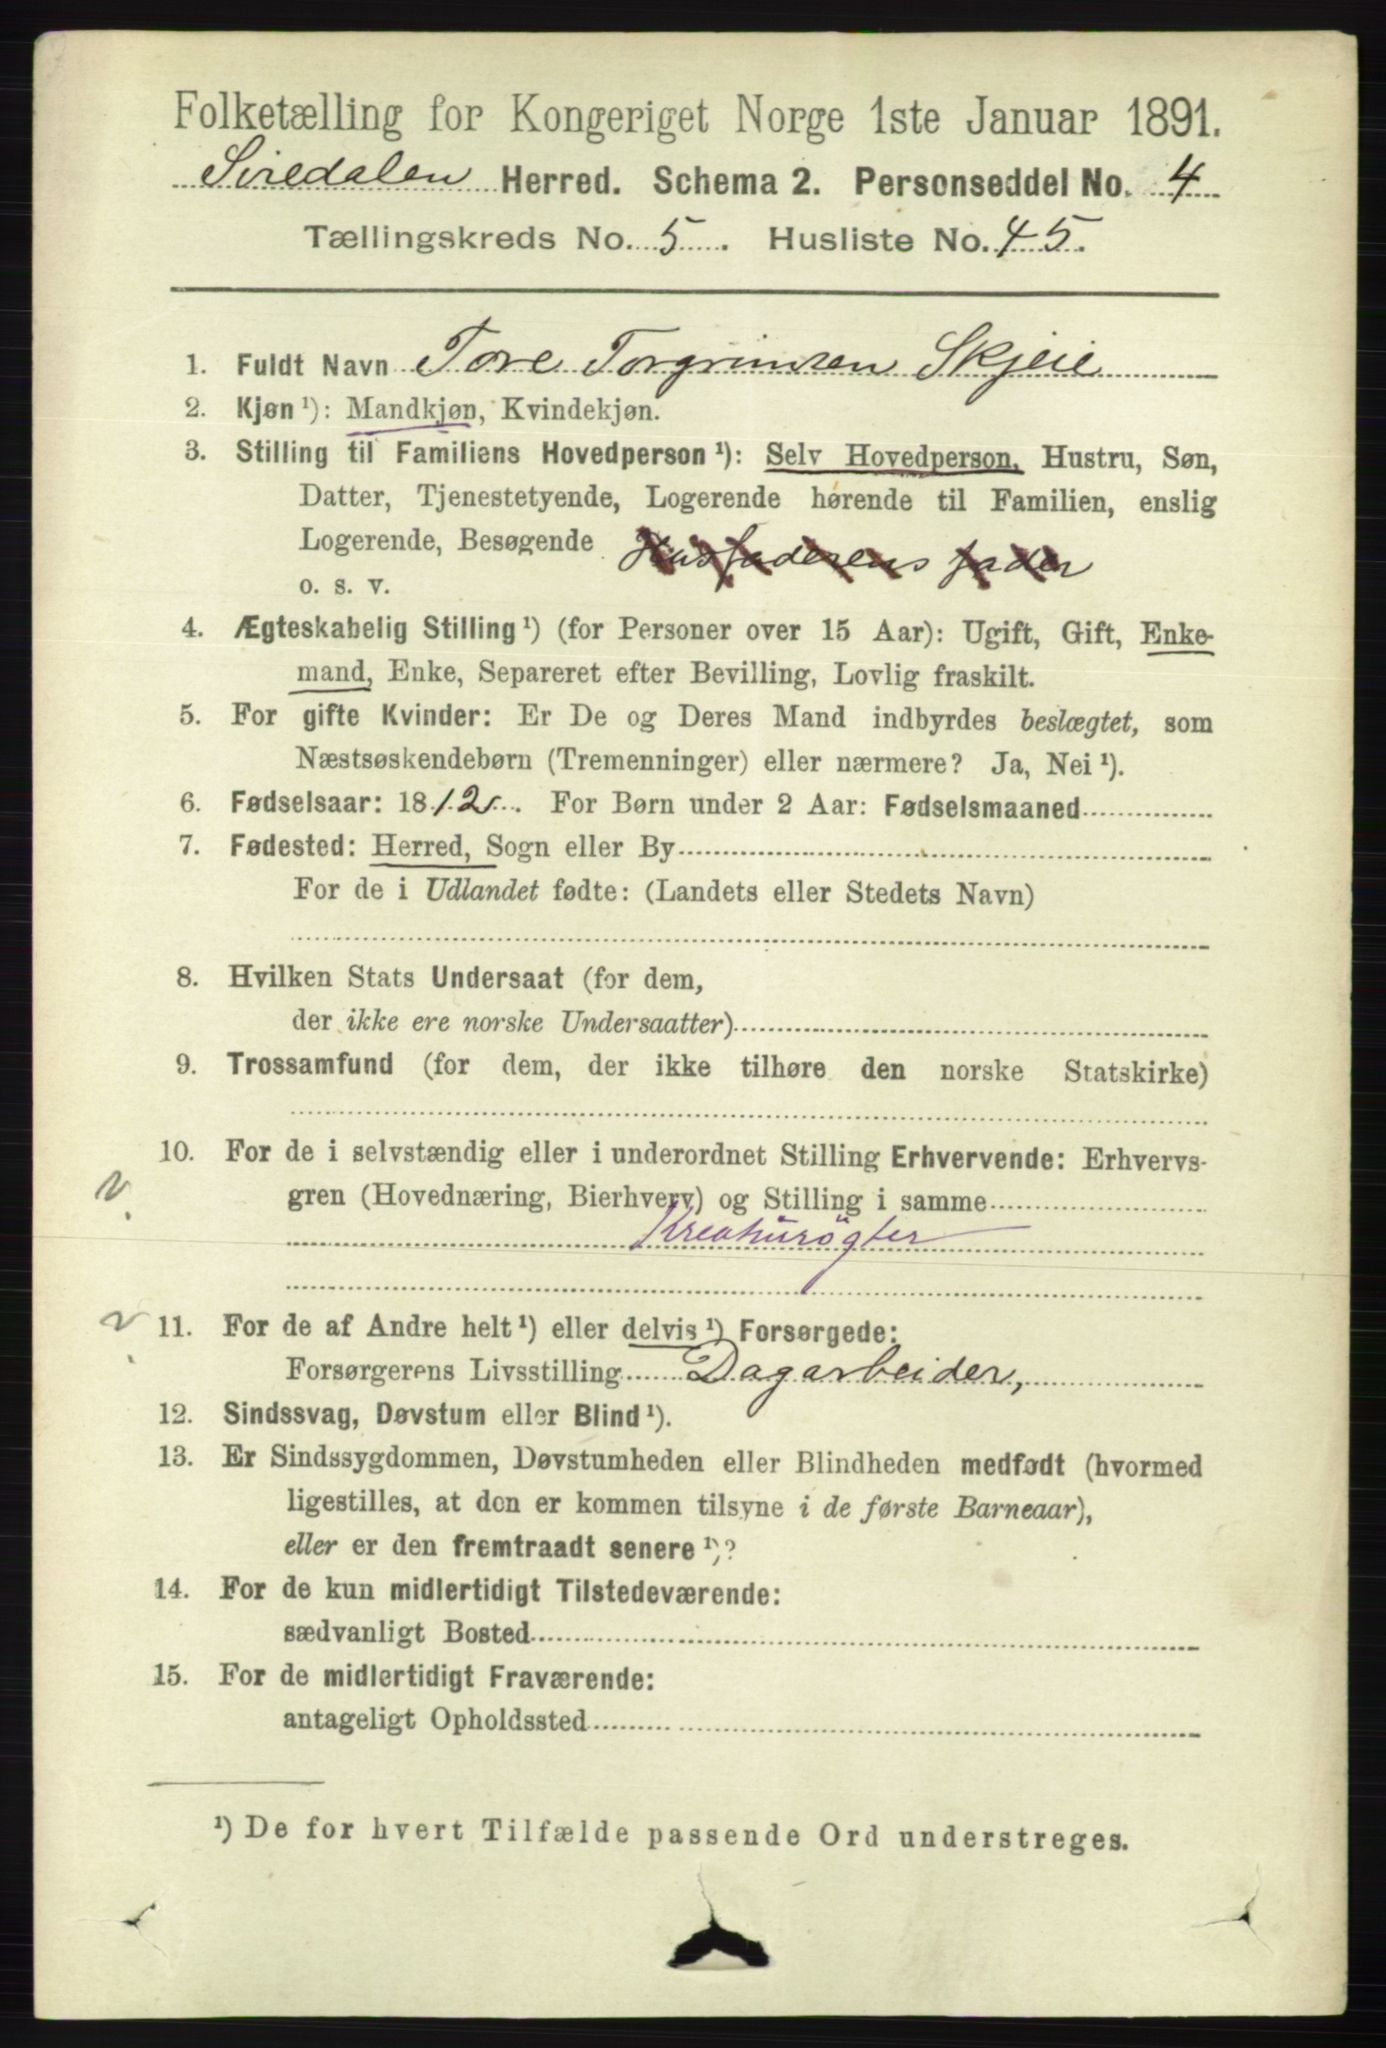 Folketælling for Kongeriget Norge 1ste Januar 1891.
Siredalen Herred. Schema 2. Personseddel No. 4
Tællingskreds No. 5. Husliste No. 45.
1. Fuldt Navn Tore Torgrimsen Skjeie
2. Kjøn ¹): Mandkjøn, Kvindekjøn.
3. Stilling til Familiens Hovedperson ¹): Selv Hovedperson, Hustru, Søn,
Datter, Tjenestetyende, Logerende hørende til Familien, enslig
Logerende, Besøgende Husfaderens fader
o. s. v.
4. Ægteskabelig Stilling ¹) (for Personer over 15 Aar): Ugift, Gift, Enke-
mand, Enke, Separeret efter Bevilling, Lovlig fraskilt.
5. For gifte Kvinder: Er De og Deres Mand indbyrdes beslægtet, som
Næstsøskendebørn (Tremenninger) eller nærmere? Ja, Nei ¹).
6. Fødselsaar: 1812. For Børn under 2 Aar: Fødselsmaaned
7. Fødested: Herred, Sogn eller By
For de i Udlandet fødte: (Landets eller Stedets Navn)
8. Hvilken Stats Undersaat (for dem,
der ikke ere norske Undersaatter)
9. Trossamfund (for dem, der ikke tilhøre den norske Statskirke)
10. For de i selvstændig eller i underordnet Stilling Erhvervende: Erhvervs-
gren (Hovednæring, Bierhverv) og Stilling i samme
Kreaturøgter
11. For de af Andre helt ¹) eller delvis ¹) Forsørgede:
Forsørgerens Livsstilling Dagarbeider,
12. Sindssvag, Døvstum eller Blind ¹).
13. Er Sindssygdommen, Døvstumheden eller Blindheden medfødt (hvormed
ligestilles, at den er kommen tilsyne i de første Barneaar),
eller er den fremtraadt senere ¹)?
14. For de kun midlertidigt Tilstedeværende:
sædvanligt Bosted
15. For de midlertidigt Fraværende:
antageligt Opholdssted
¹) De for hvert Tilfælde passende Ord understreges.